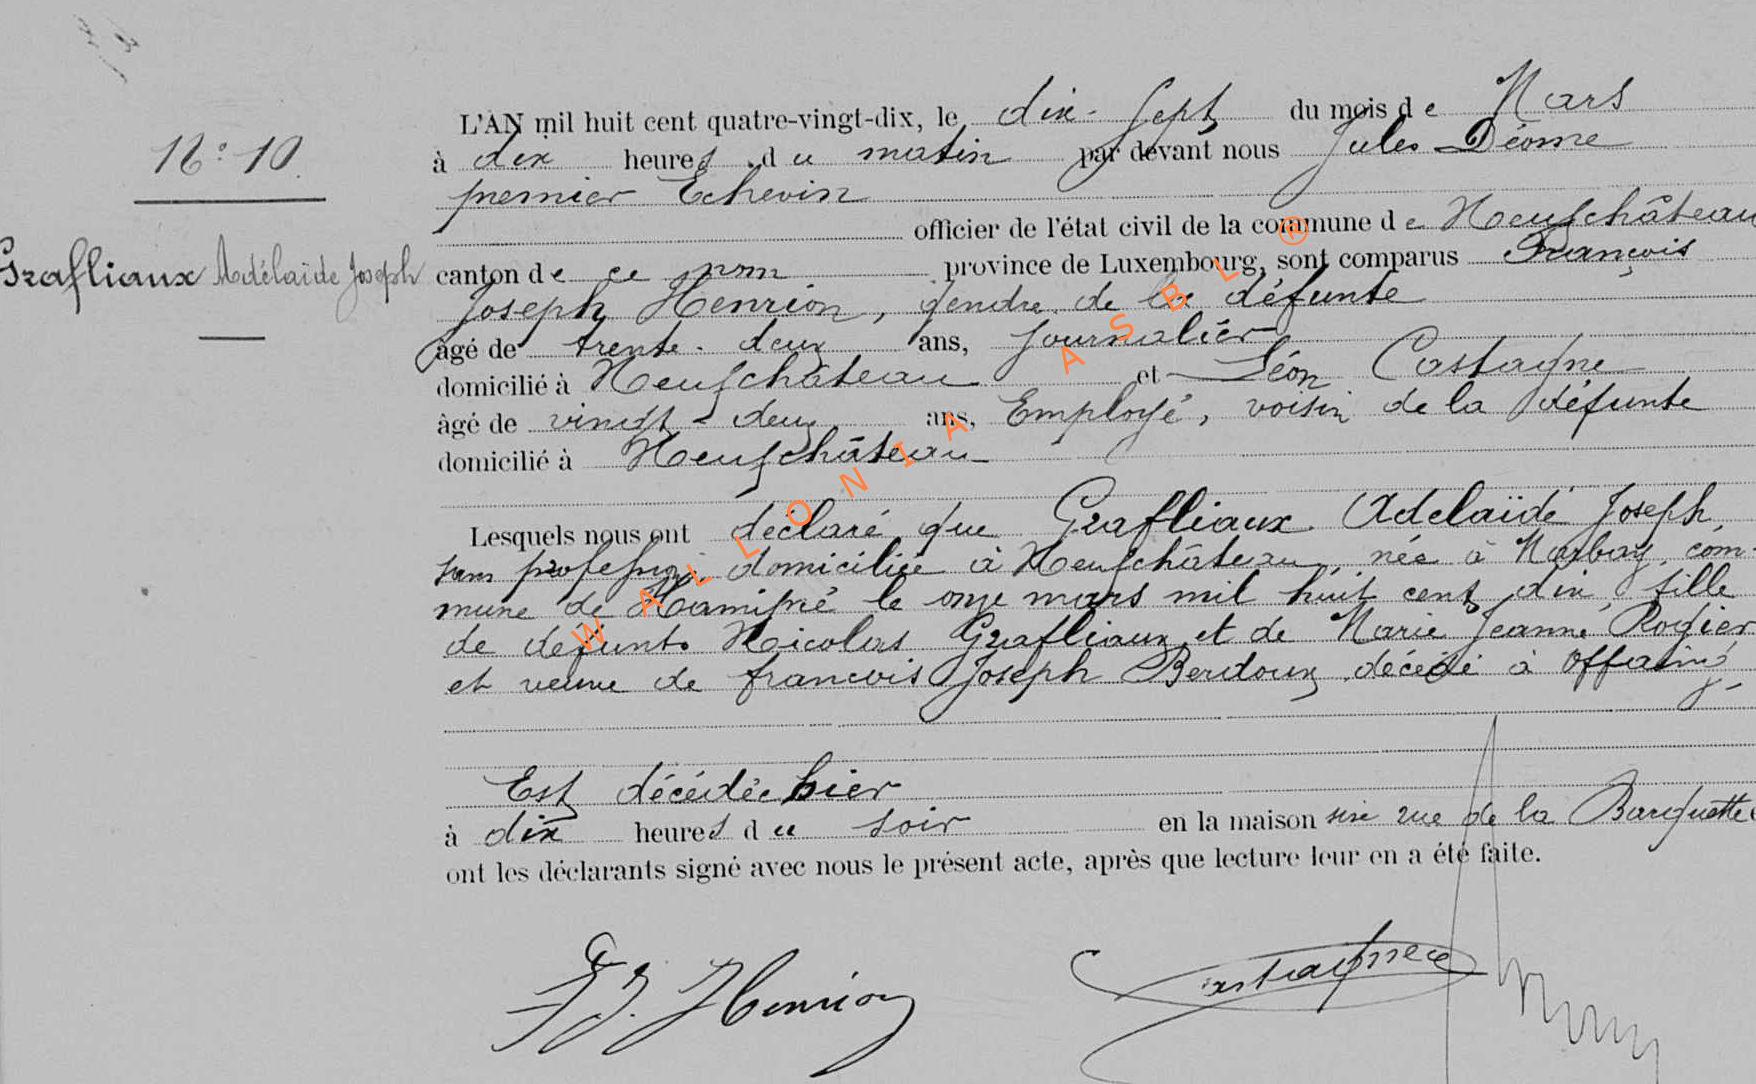 N°: 10.
Grafliaux Adélaïde Joseph
L'AN mil huit cent quatre-vingt-dix, le dix-sept du mois de Mars
à dix heures du matin par devant nous Jules Déome
premier Echevin
officier de l'état civil de la commune de Neufchâteau
canton de ce nom province de Luxembourg, sont comparus François
Joseph Henrion, gendre de la défunte
âgé de trente-deux ans, journalier
domicilié à Neufchâteau et Léon Castagne
âgé de vingt-deux ans, Employé, voisin de la défunte
domicilié à Neufchâteau
Lesquels nous ont déclaré que Grafliaux Adelaïde Joseph,
sans profession domiciliée à Neufchâteau, née à Marbay, com-
mune de Hamipré le onze mars mil huit cent dix, fille
de défunts Nicolas Grafliaux et de Marie Jeanne Rogier
et veuve de francois Joseph Berdoux décédé à Offaing
Est décédée hier
à dix heures du soir en la maison sise rue de la Barquette
ont les déclarants signé avec nous le présent acte, après que lecture leur en a été faite.
F J. Henrion Castagne
WALLONIA ASBL ®